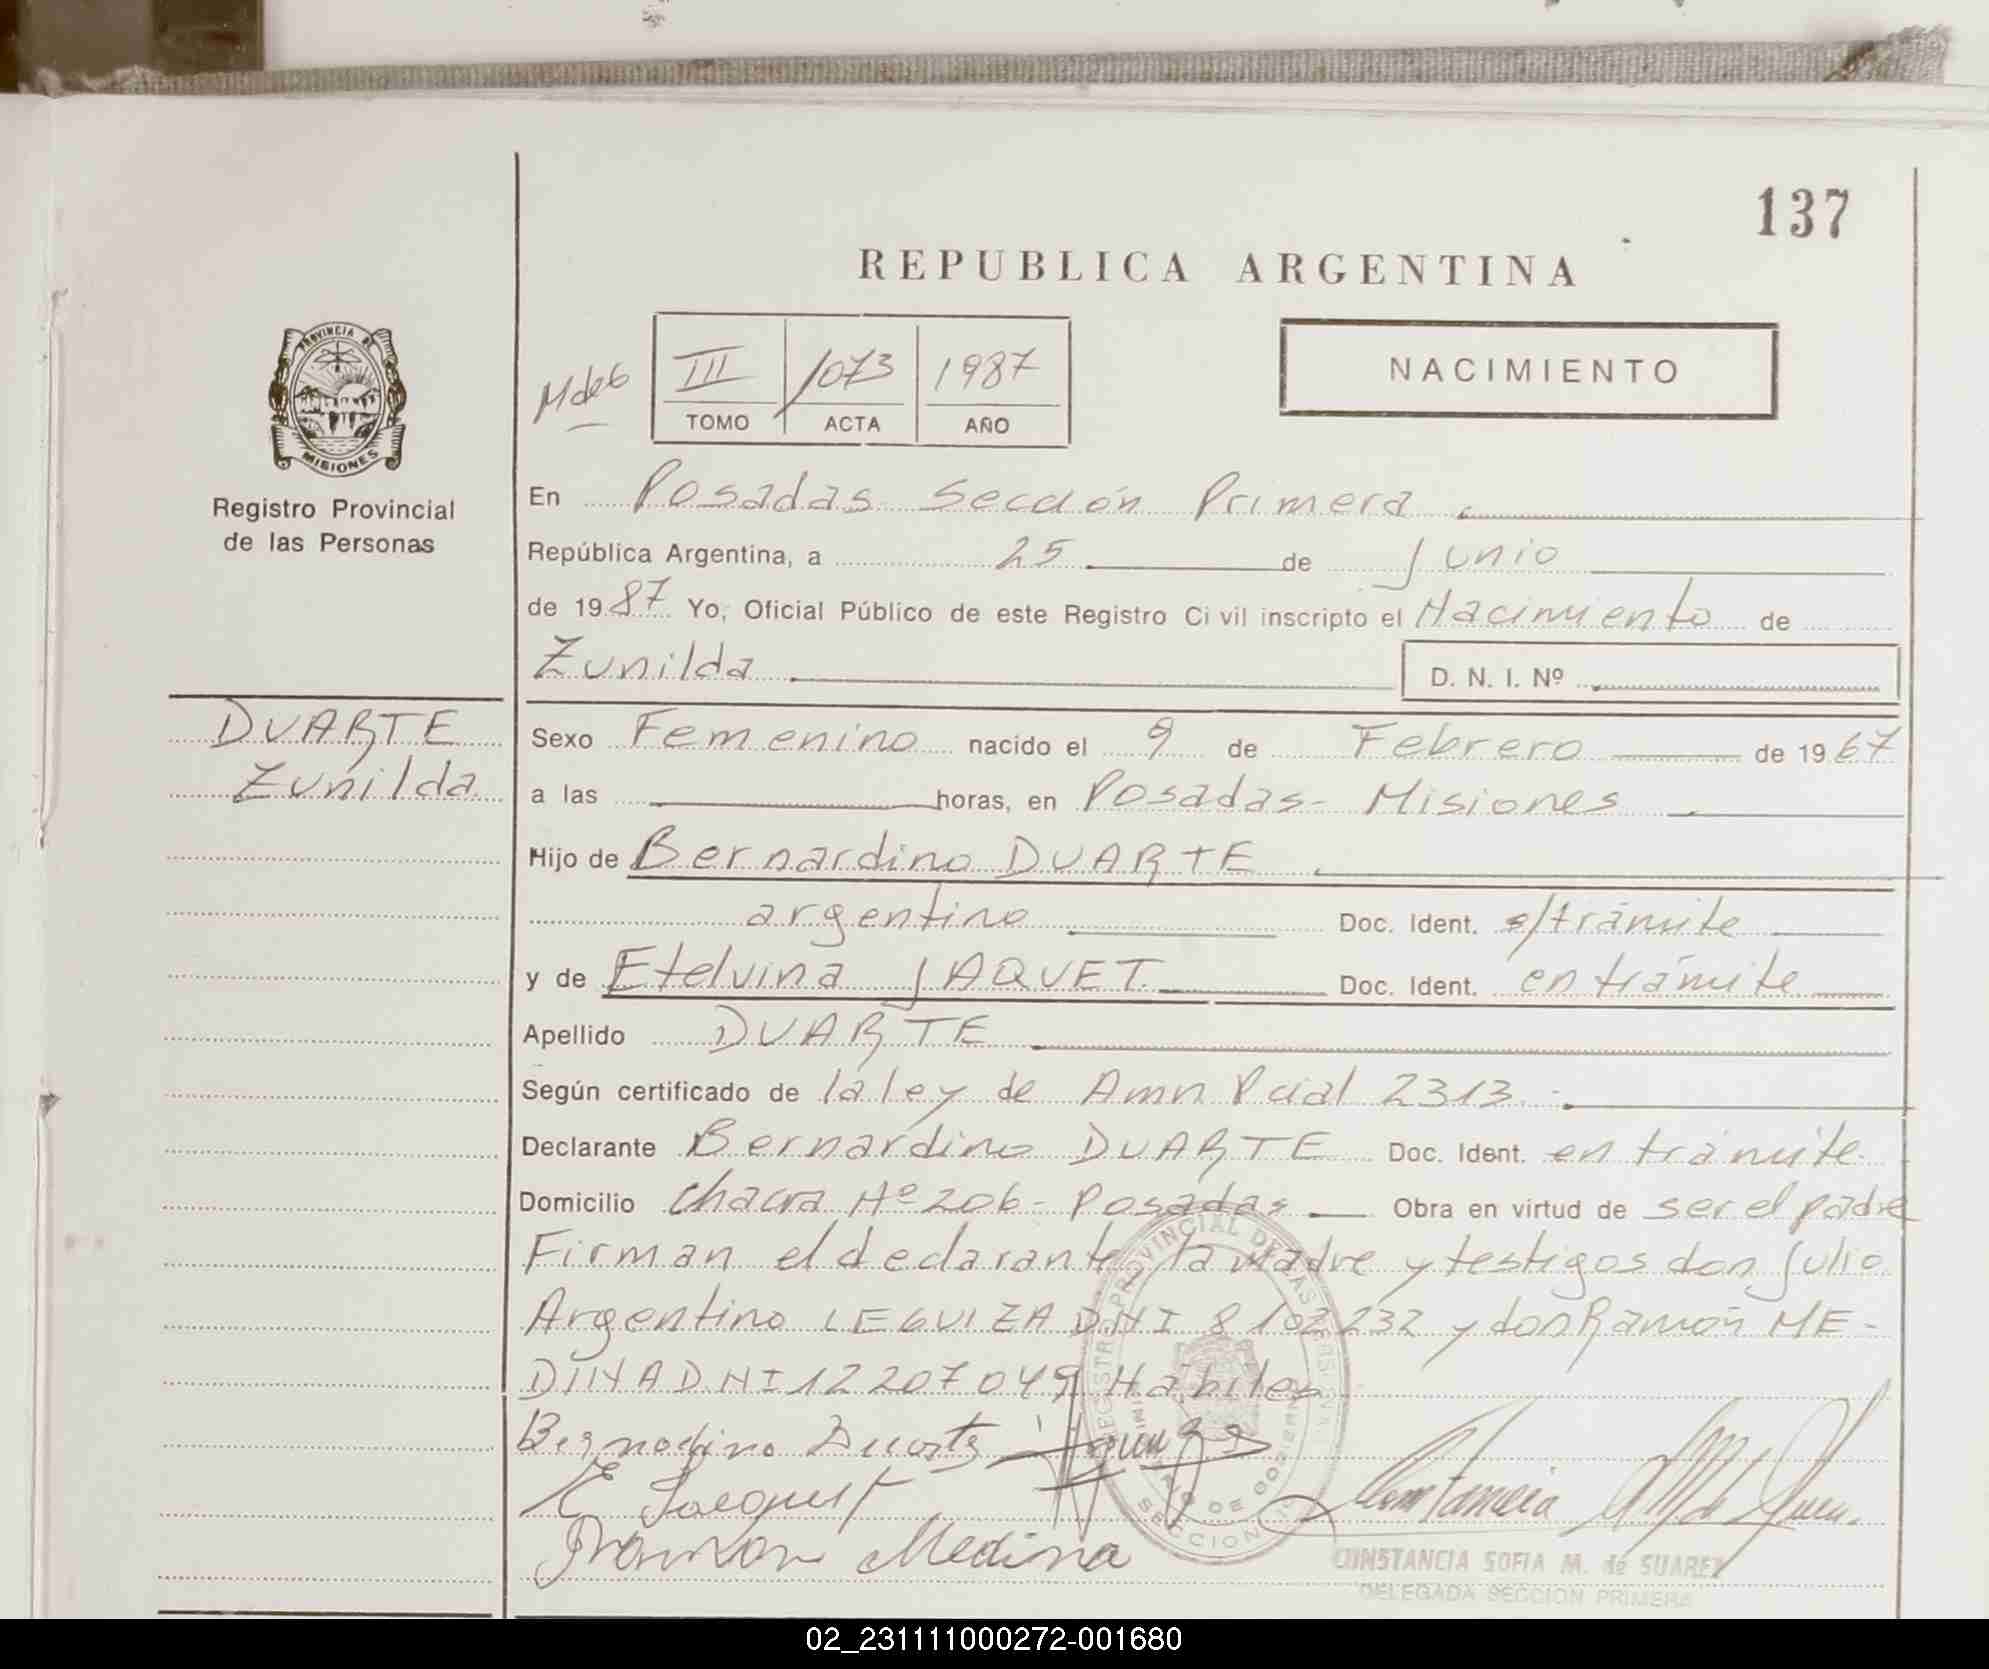 137
REPUBLICA ARGENTINA
PROVINCIA DE
MISIONES
Registro Provincial
de las Personas
III 1073 1987
TOMO ACTA AÑO
NACIMIENTO
En Posadas Sección Primera
República Argentina, a 25 de Junio
de 1987 Yo, Oficial Público de este Registro Civil inscripto el Nacimiento de
Zunilda D. N. I. Nº
DUARTE
Zunilda
Sexo Femenino nacido el 9 de Febrero de 1967
a las horas, en Posadas - Misiones
Hijo de Bernardino DUARTE
argentino Doc. Ident. e/trámite
y de Etelvina JAQUET Doc. Ident. en trámite
Apellido DUARTE
Según certificado de la ley de Amn Pcial 2313.-
Declarante Bernardino DUARTE Doc. Ident. en trámite
Domicilio Chacra Nº 206 - Posadas Obra en virtud de ser el padre
Firman el declarante, la madre y testigos don Julio
Argentino LEGUIZA DNI 8102232 y don Ramón ME-
DINA DNI 12207049 Hábiles
Bernardino Duarte
E Jacquet
Ramon Medina
REGISTRO PROVINCIAL DE LAS PERSONAS
CONSTANCIA SOFIA M. de SUAREZ
DELEGADA SECCION PRIMERA
02_231111000272-001680